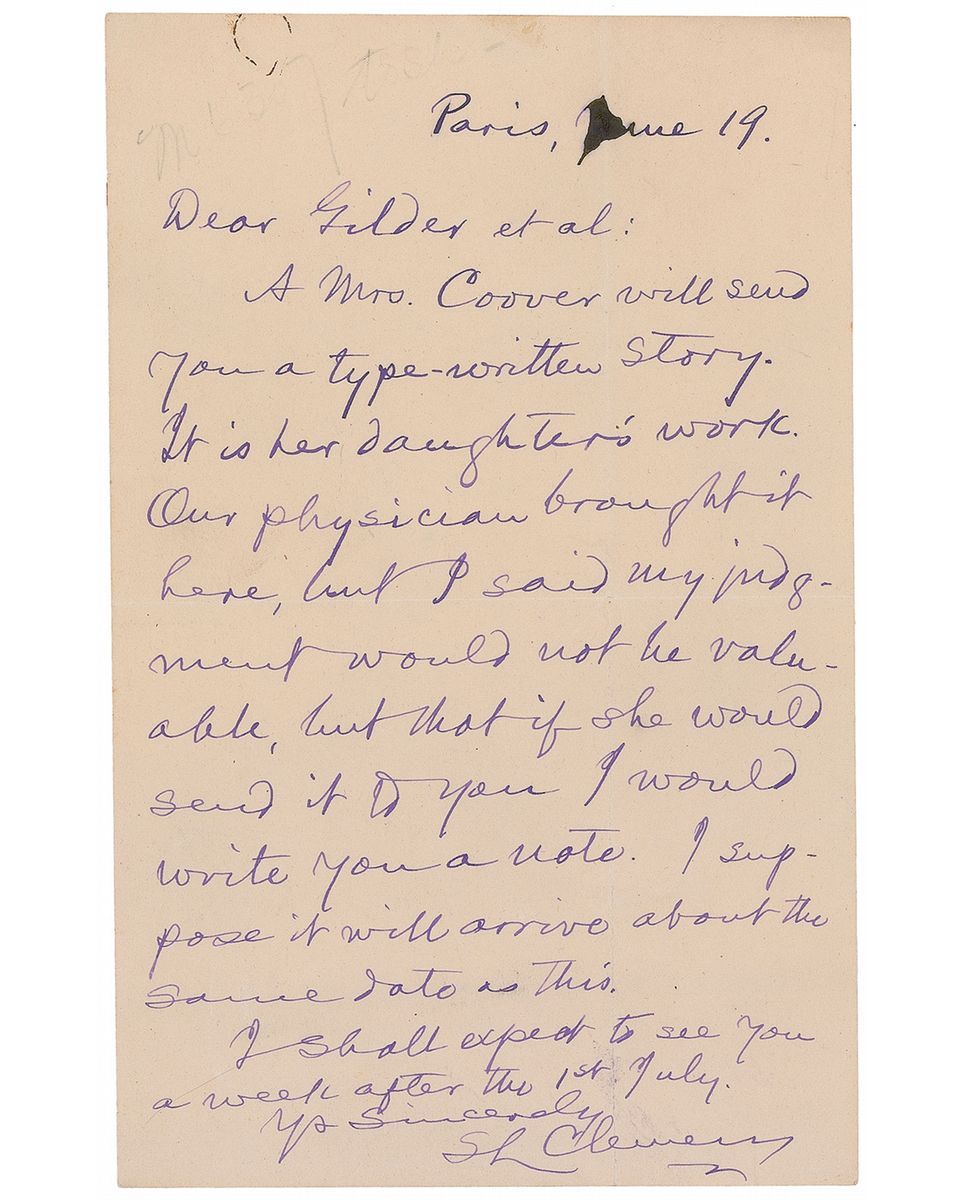 Paris, June 19.
Dear Gilder et al:
A Mrs. Coover will send
you a type-written story.
It is her daughter's work.
Our physician brought it
here, but I said my judg-
ment would not be valu-
able, but that if she would
send it to you I would
write you a note. I sup-
pose it will arrive about the
same date as this.
I shall expect to see you
a week after the 1st July.
Ys Sincerely
SL Clemens